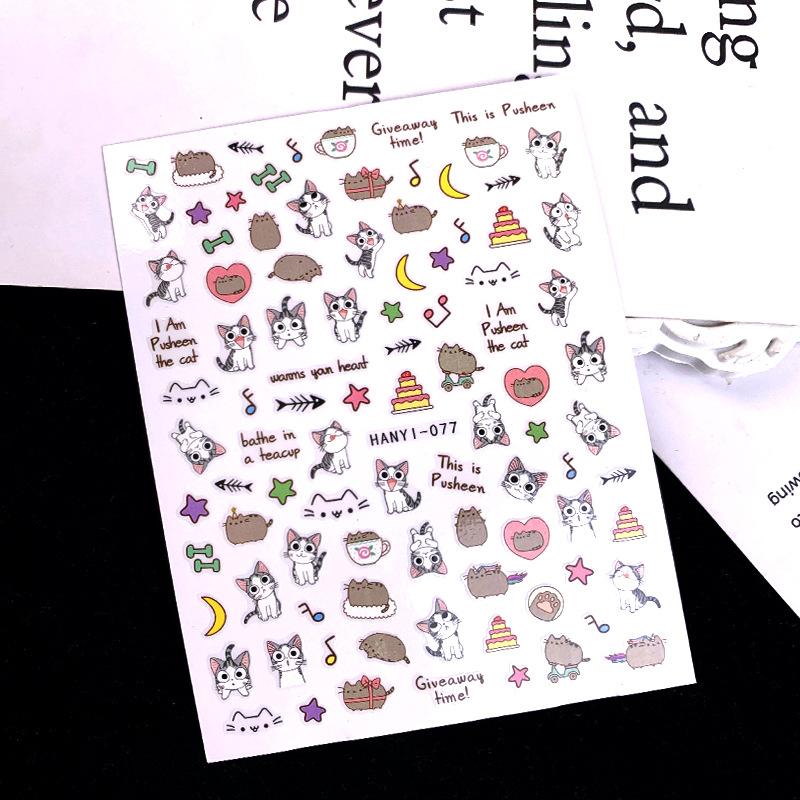 Giveaway
time!
This is Pusheen
I Am
Pusheen
the cat
I Am
Pusheen
the cat
warms yan heart
bathe in
a teacup
HANYI-077
This is
Pusheen
Giveaway
time!
ever
st
lin
rd, and
ng
owing
to